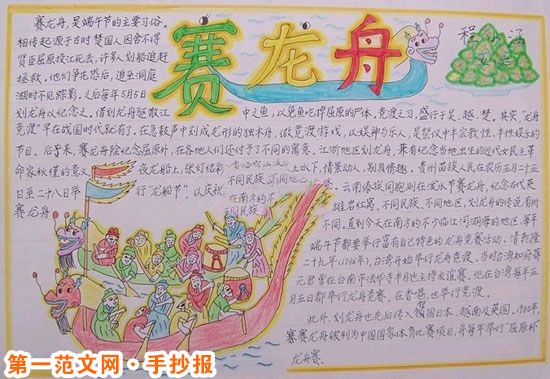 赛龙舟
程小涵
赛龙舟，是端午节的主要习俗。
相传起源于古时楚国人因舍不得
贤臣屈原投江死去，许多人划船追赶
拯救。他们争先恐后，追至洞庭
湖时不见踪影，之后每年5月5日
划龙舟以纪念之。借划龙舟驱散江
中之鱼，以免鱼吃掉屈原的尸体。竞渡之习，盛行于吴、越、楚。其实，"龙舟
竞渡"早在战国时代就有了。在急鼓声中刻成龙形的独木舟，做竞渡游戏，以娱神与乐人，是祭仪中半宗教性、半娱乐的
节目。后来，赛龙舟除纪念屈原外，在各地人们还付予了不同的寓意。江浙地区划龙舟，兼有纪念当地出生的近代女民主革
命家秋瑾的意义。夜龙船上，张灯结彩
上水下，情景动人，别具情趣。贵州苗族人民在农历五月二十五
日至二十八日举行"龙船节"，以庆祝
云南傣族同胞则在泼水节赛龙舟，纪念古代英
雄岩红窝。不同民族、不同地区，划龙舟的传说有所
赛龙舟
在南方的不
不同民族
不同。直到今天在南方的不少临江河湖海的地区，每年
端午节都要举行富有自己特色的龙舟竞赛活动。清乾隆
二十九年（1736年），台湾开始举行龙舟竞渡。当时台湾知府蒋
元君曾在台南市法华寺半月池主持友谊赛。现在台湾每年五
月五日都举行龙舟竞赛。在香港，也举行竞渡。
此外，划龙舟也先后传入邻国日本、越南及英国。1980年，
赛龙舟被列为中国国家体育比赛项目，并每年举行"屈原杯"
龙舟赛。
第一范文网·手抄报